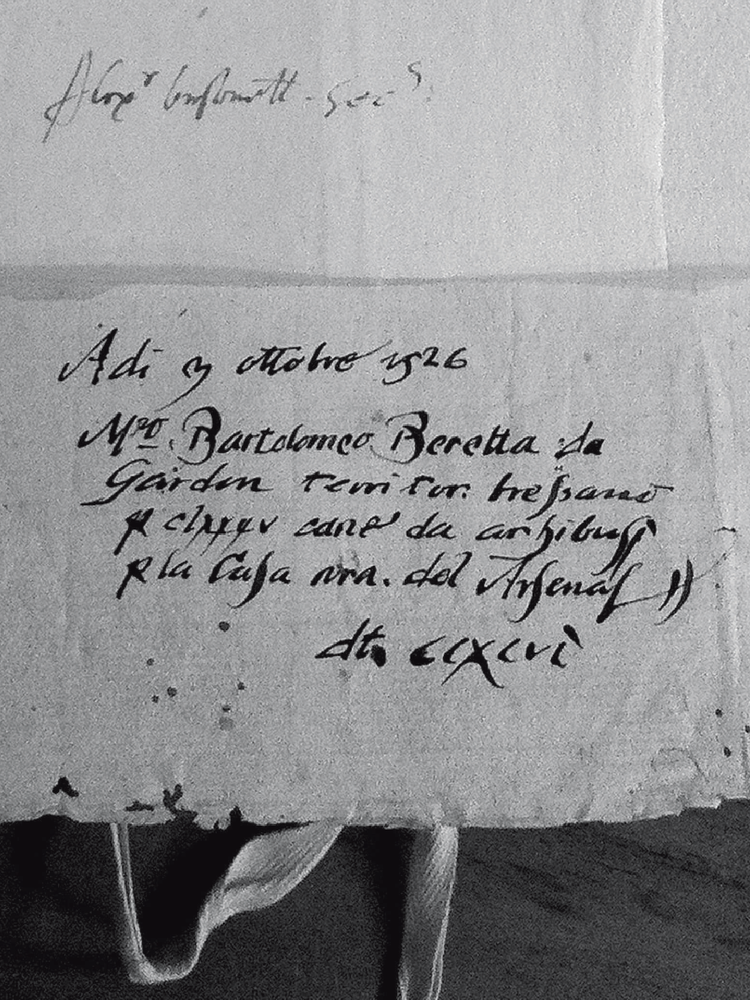 Adi 3 ottobre 1526
Mro. Bartolomeo Beretta da
Gardon territor. bressano
p clxxxv cane da archibussi
p la Casa nra. del Arsenal
dti. cclxxxxvi